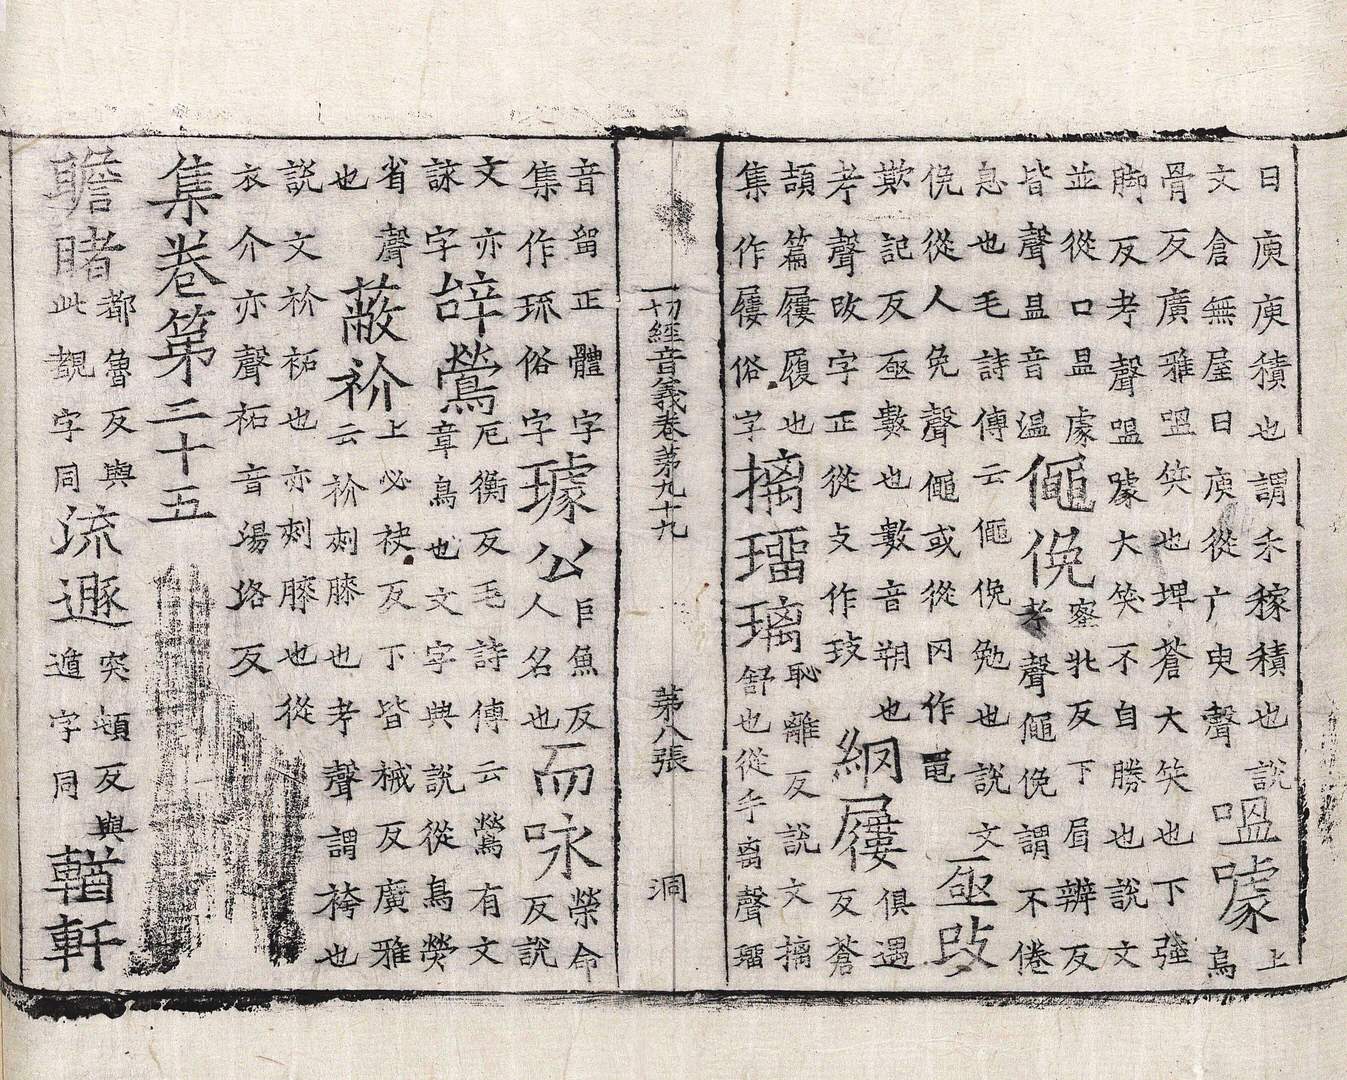 日庾庾積也謂禾稼積也說
文倉無屋曰庾從广臾聲
嗢噱
上
烏
骨反廣雅嗢笑也埤蒼大笑也下強
脚反考聲嗢噱大笑不自勝也說文
並從口昷豦
皆聲昷音溫
僶俛
察牝反下眉辨反
考聲僶俛謂不倦
息也毛詩傳云僶俛勉也說文
俛從人免聲僶或從冈作黽
亟攺
欺記反亟數也數音朔也
考聲攺字正從攴作㩼
網屨
俱遇
反蒼
頡篇屨履也
集作屨俗字
摛瑠璃
恥離反說文摛
舒也從手离聲瑠
一切經音義卷第九十九 第八張 洞
音畱正體字
集作琉俗字
璩公
巨魚反
人名也
而咏
榮命
反說
文亦
詠字
辝鶯
厄衡反毛詩傳云鶯有文
章鳥也文字典說從鳥熒
省聲
也
蔽衸
上必袂反下皆械反廣雅
云衸刾膝也考聲謂袴也
說文衸祏也亦刾膝也從
衣介亦聲祏音湯洛反
集卷第二十五
瞻睹
都魯反與
此覩字同
流遯
突頓反與
遁字同
輶軒